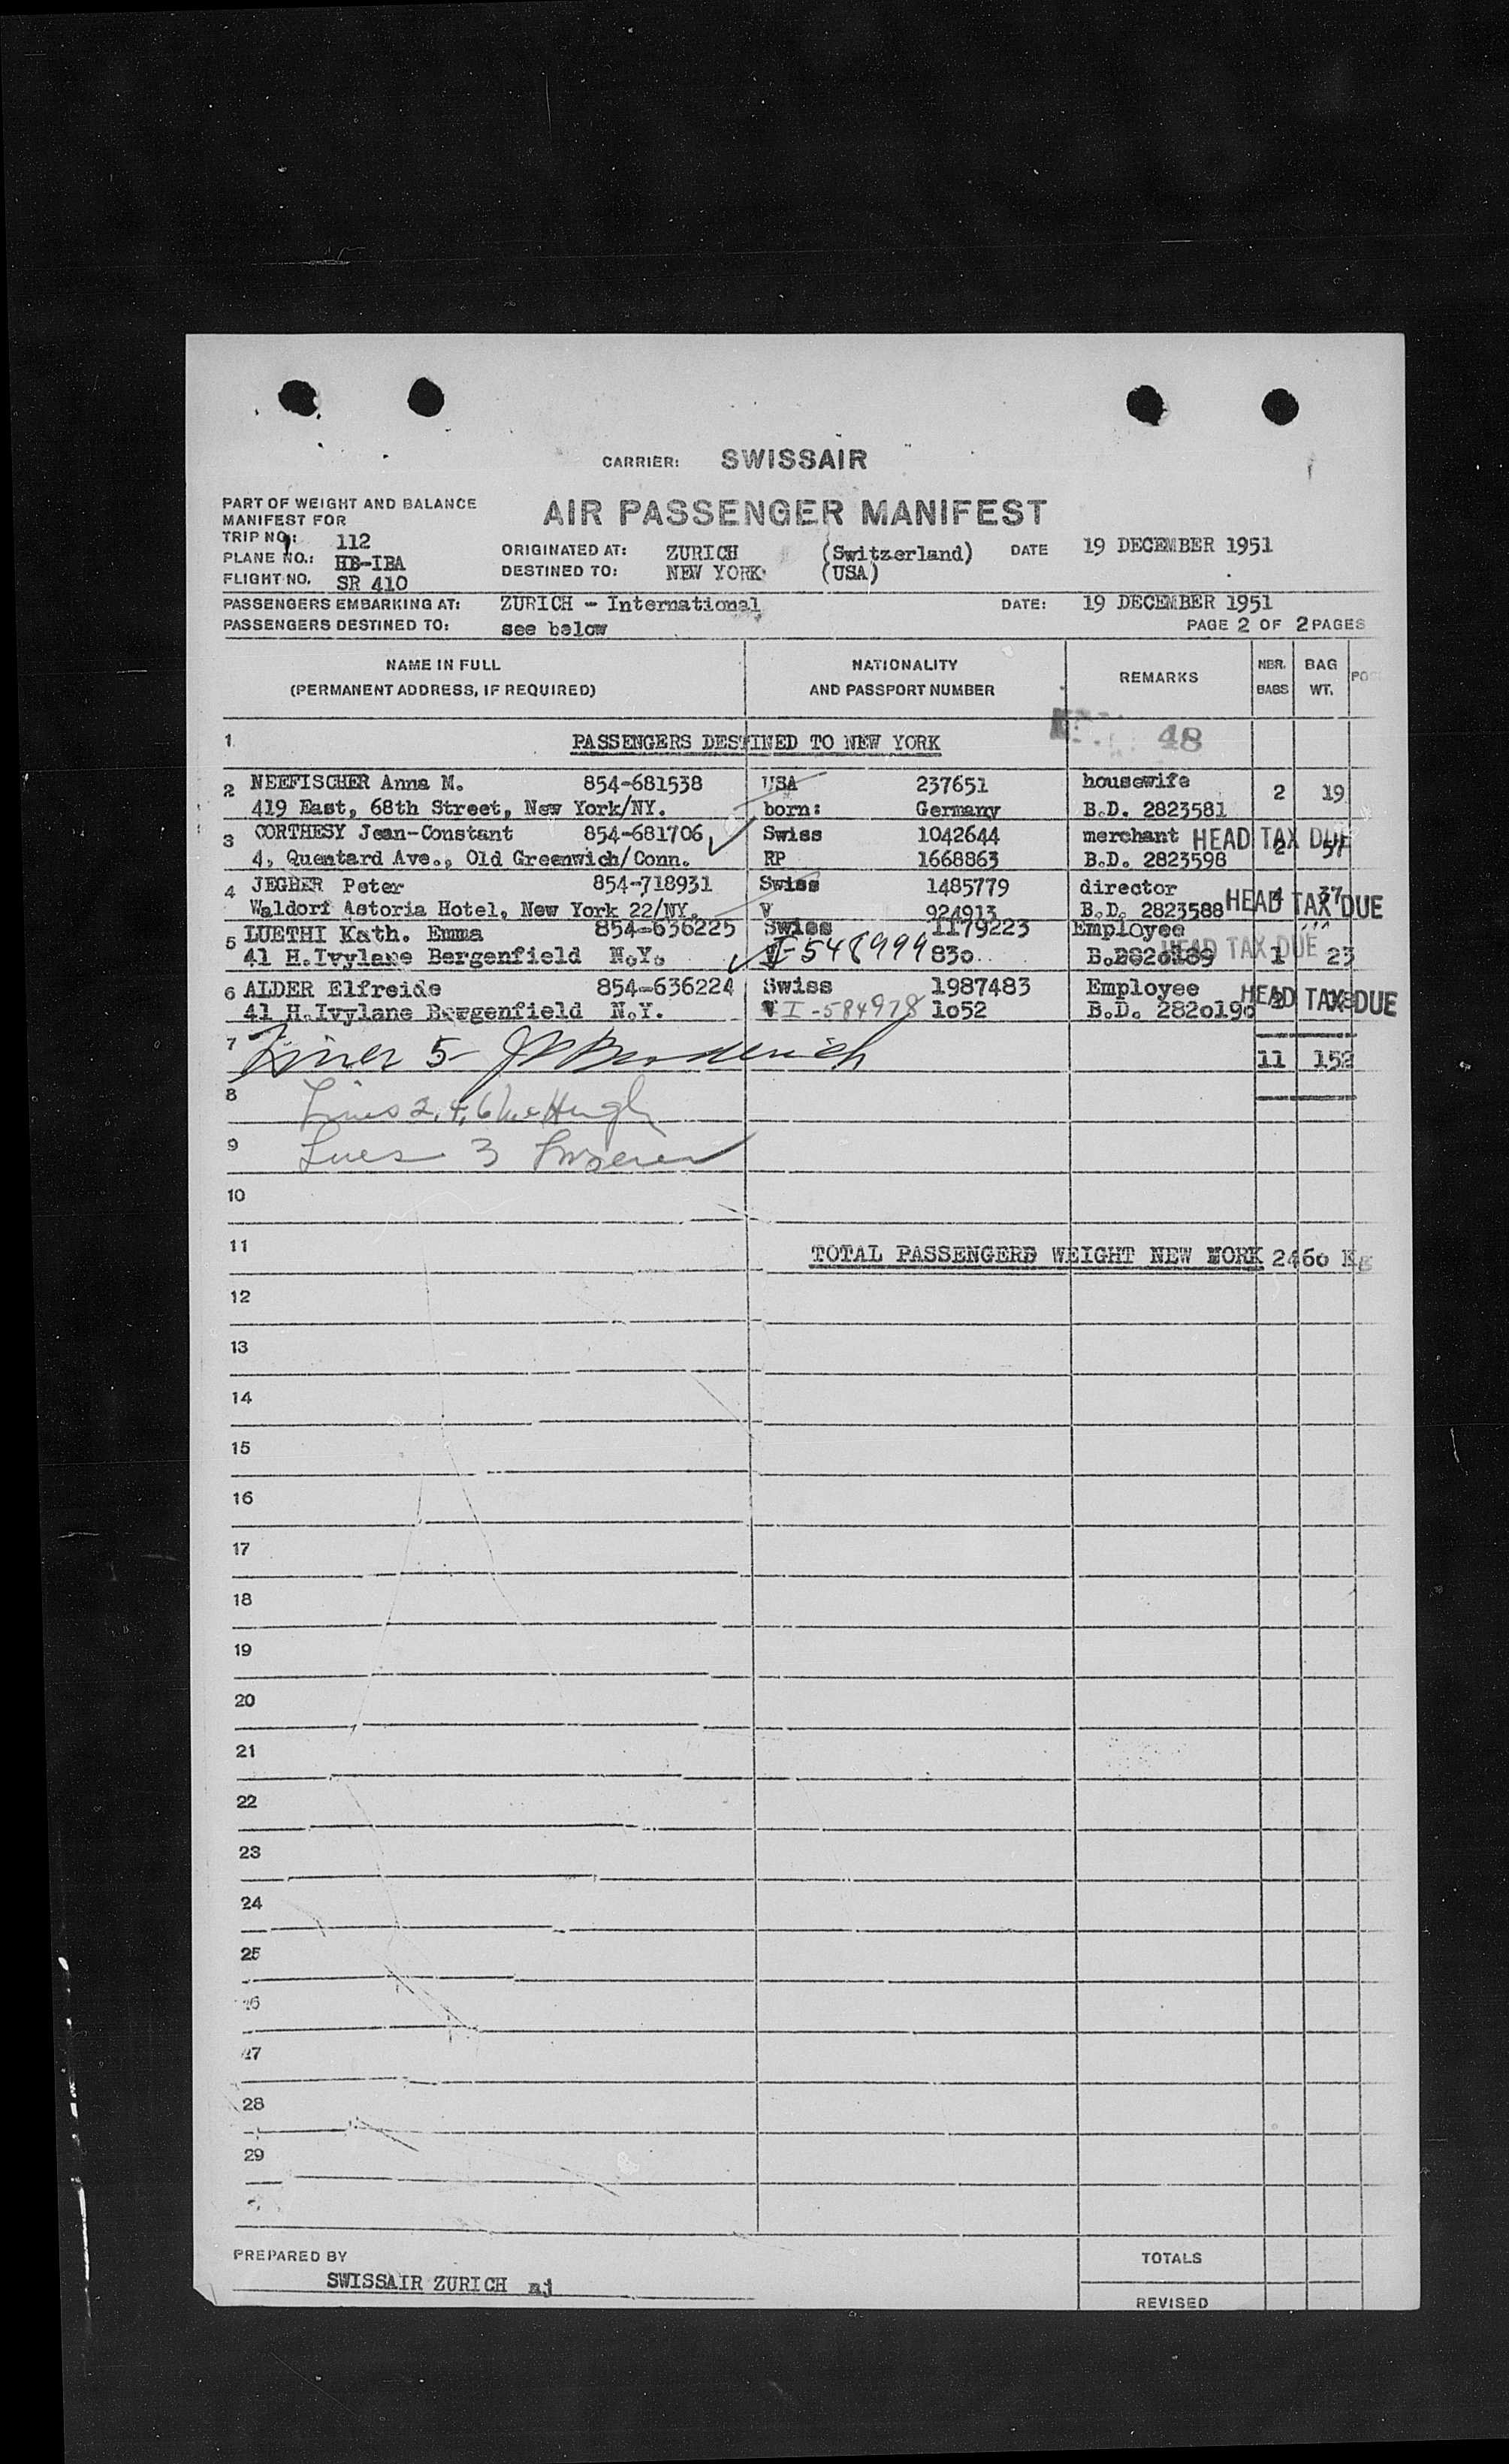 CARRIER: SWISSAIR
PART OF WEIGHT AND BALANCE
MANIFEST FOR
AIR PASSENGER MANIFEST
TRIP NO.: 112
PLANE NO.: HB-IBA
FLIGHT NO. SR 410
ORIGINATED AT: ZURICH (Switzerland) DATE 19 DECEMBER 1951
DESTINED TO: NEW YORK (USA)
PASSENGERS EMBARKING AT: ZURICH - International DATE: 19 DECEMBER 1951
PASSENGERS DESTINED TO: see below PAGE 2 OF 2 PAGES
NAME IN FULL NATIONALITY REMARKS NBR. BAG
(PERMANENT ADDRESS, IF REQUIRED) AND PASSPORT NUMBER BABS WT.
48
1 PASSENGERS DESTINED TO NEW YORK
2 NEEFISCHER Anna M. 854-681538 USA 237651 housewife 2 19
419 East, 68th Street, New York/NY. born: Germany B.D. 2823581
3 CORTHESY Jean-Constant 854-681706 Swiss 1042644 merchant HEAD TAX DUE
4, Quentard Ave., Old Greenwich/Conn. RP 1668863 B.D. 2823598
4 JEGHER Peter 854-718931 Swiss 1485779 director 37
Waldorf Astoria Hotel, New York 22/NY. V 924913 B.D. 2823588 HEAD TAX DUE
5 LUETHI Kath. Emma 854-636225 Swiss 1179223 Employee
41 H.Ivylane Bergenfield N.Y. V I-548999 83o HEAD TAX DUE 1 23
6 ALDER Elfreide 854-636224 Swiss 1987483 Employee HEAD TAX DUE
41 H.Ivylane Bergenfield N.Y. V I-584978 1o52 B.D. 282o19o
7 Lines 5- 11 152
8 Lines 2,4,6 McHugh
9 Lines 3
10
11 TOTAL PASSENGERS WEIGHT NEW YORK 246o Kg
12
13
14
15
16
17
18
19
20
21
22
23
24
25
26
27
28
29
PREPARED BY TOTALS
SWISSAIR ZURICH
REVISED